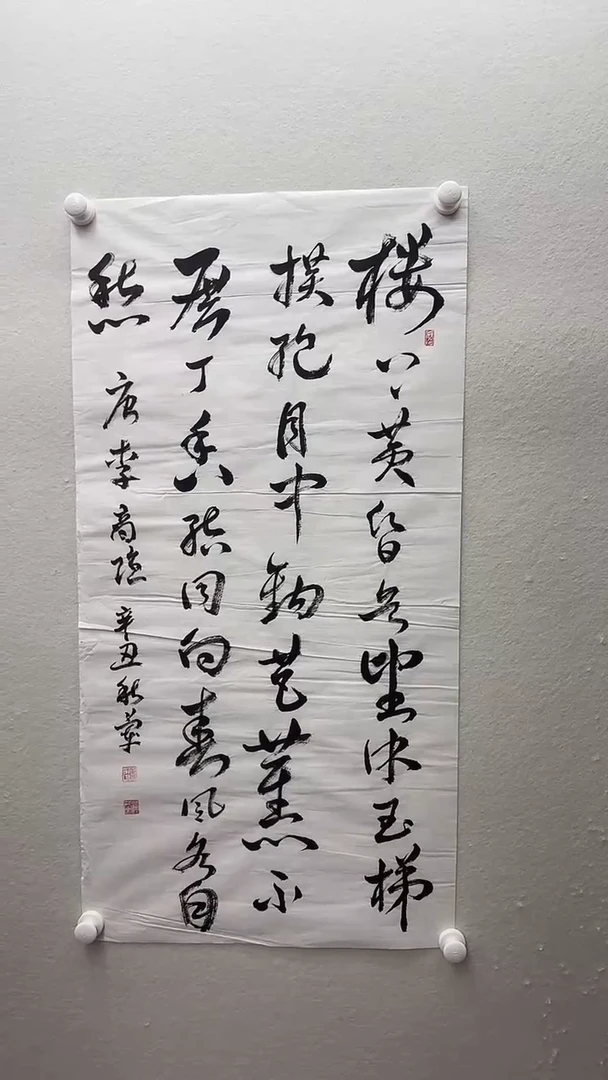 楼上黄昏欲望休玉梯
横绝月中钩芭蕉不
展丁香结同向春风各自
愁
唐李商隐 辛丑秋